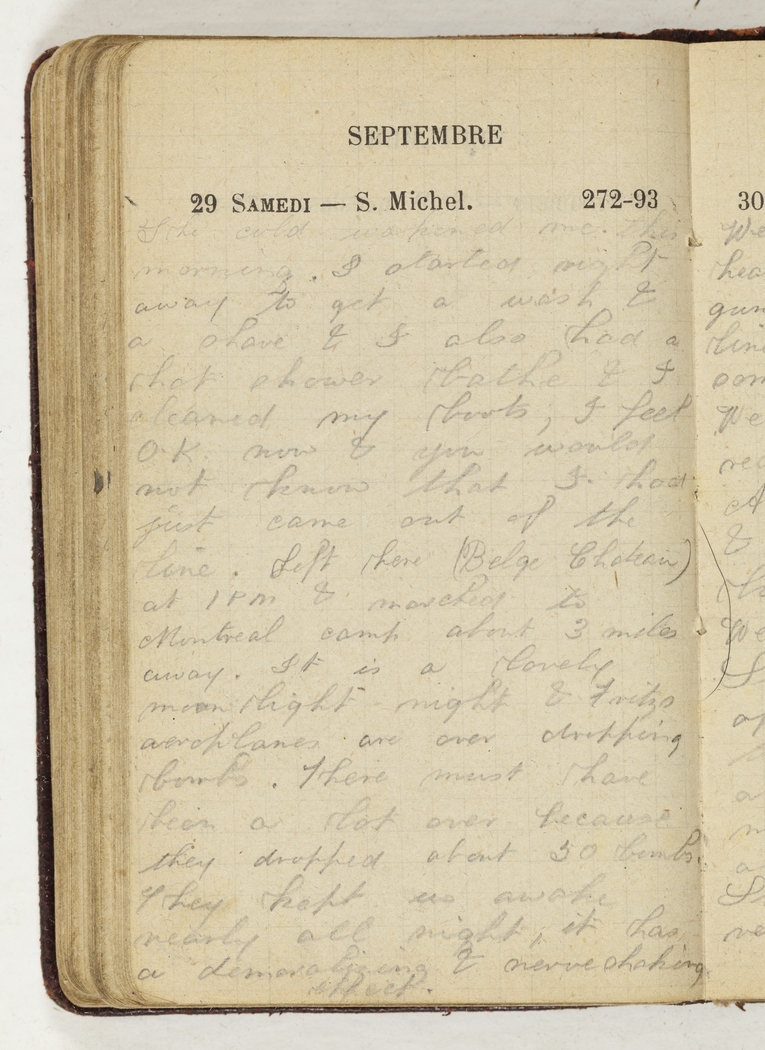 SEPTEMBRE
29 SAMEDI — S. Michel. 272-93
The cold wakened me this
morning. I started right
away to get a wash &
a shave & I also had a
hot shower bathe & I
cleaned my boots, I feel
O.K. now & you would
not know that I had
just came out of the
line. Left here (Belge Chateau)
at 1 PM & marched to
Montreal camp about 3 miles
away. It is a lovely
moonlight night & Fritzs
aeroplanes are over dropping
bombs. There must have
been a lot over because
they dropped about 50 bombs.
They kept us awake
nearly all night, it has
a demoralizing & nerve shaking
effect.
30
We
hea
gun
line
som
We
rec
&
We
ve